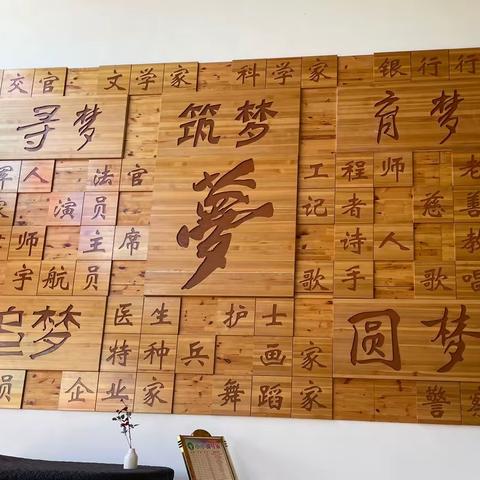 交官 文学家 科学家 银行行
寻梦 筑梦 育梦
军人 法官 工程师 老
演员 记者 慈善
师 主席 夢 诗人 教
宇航员 歌手 歌唱
梦 医生 护士 圆梦
特种兵 画家
员 企业家 舞蹈家 警察